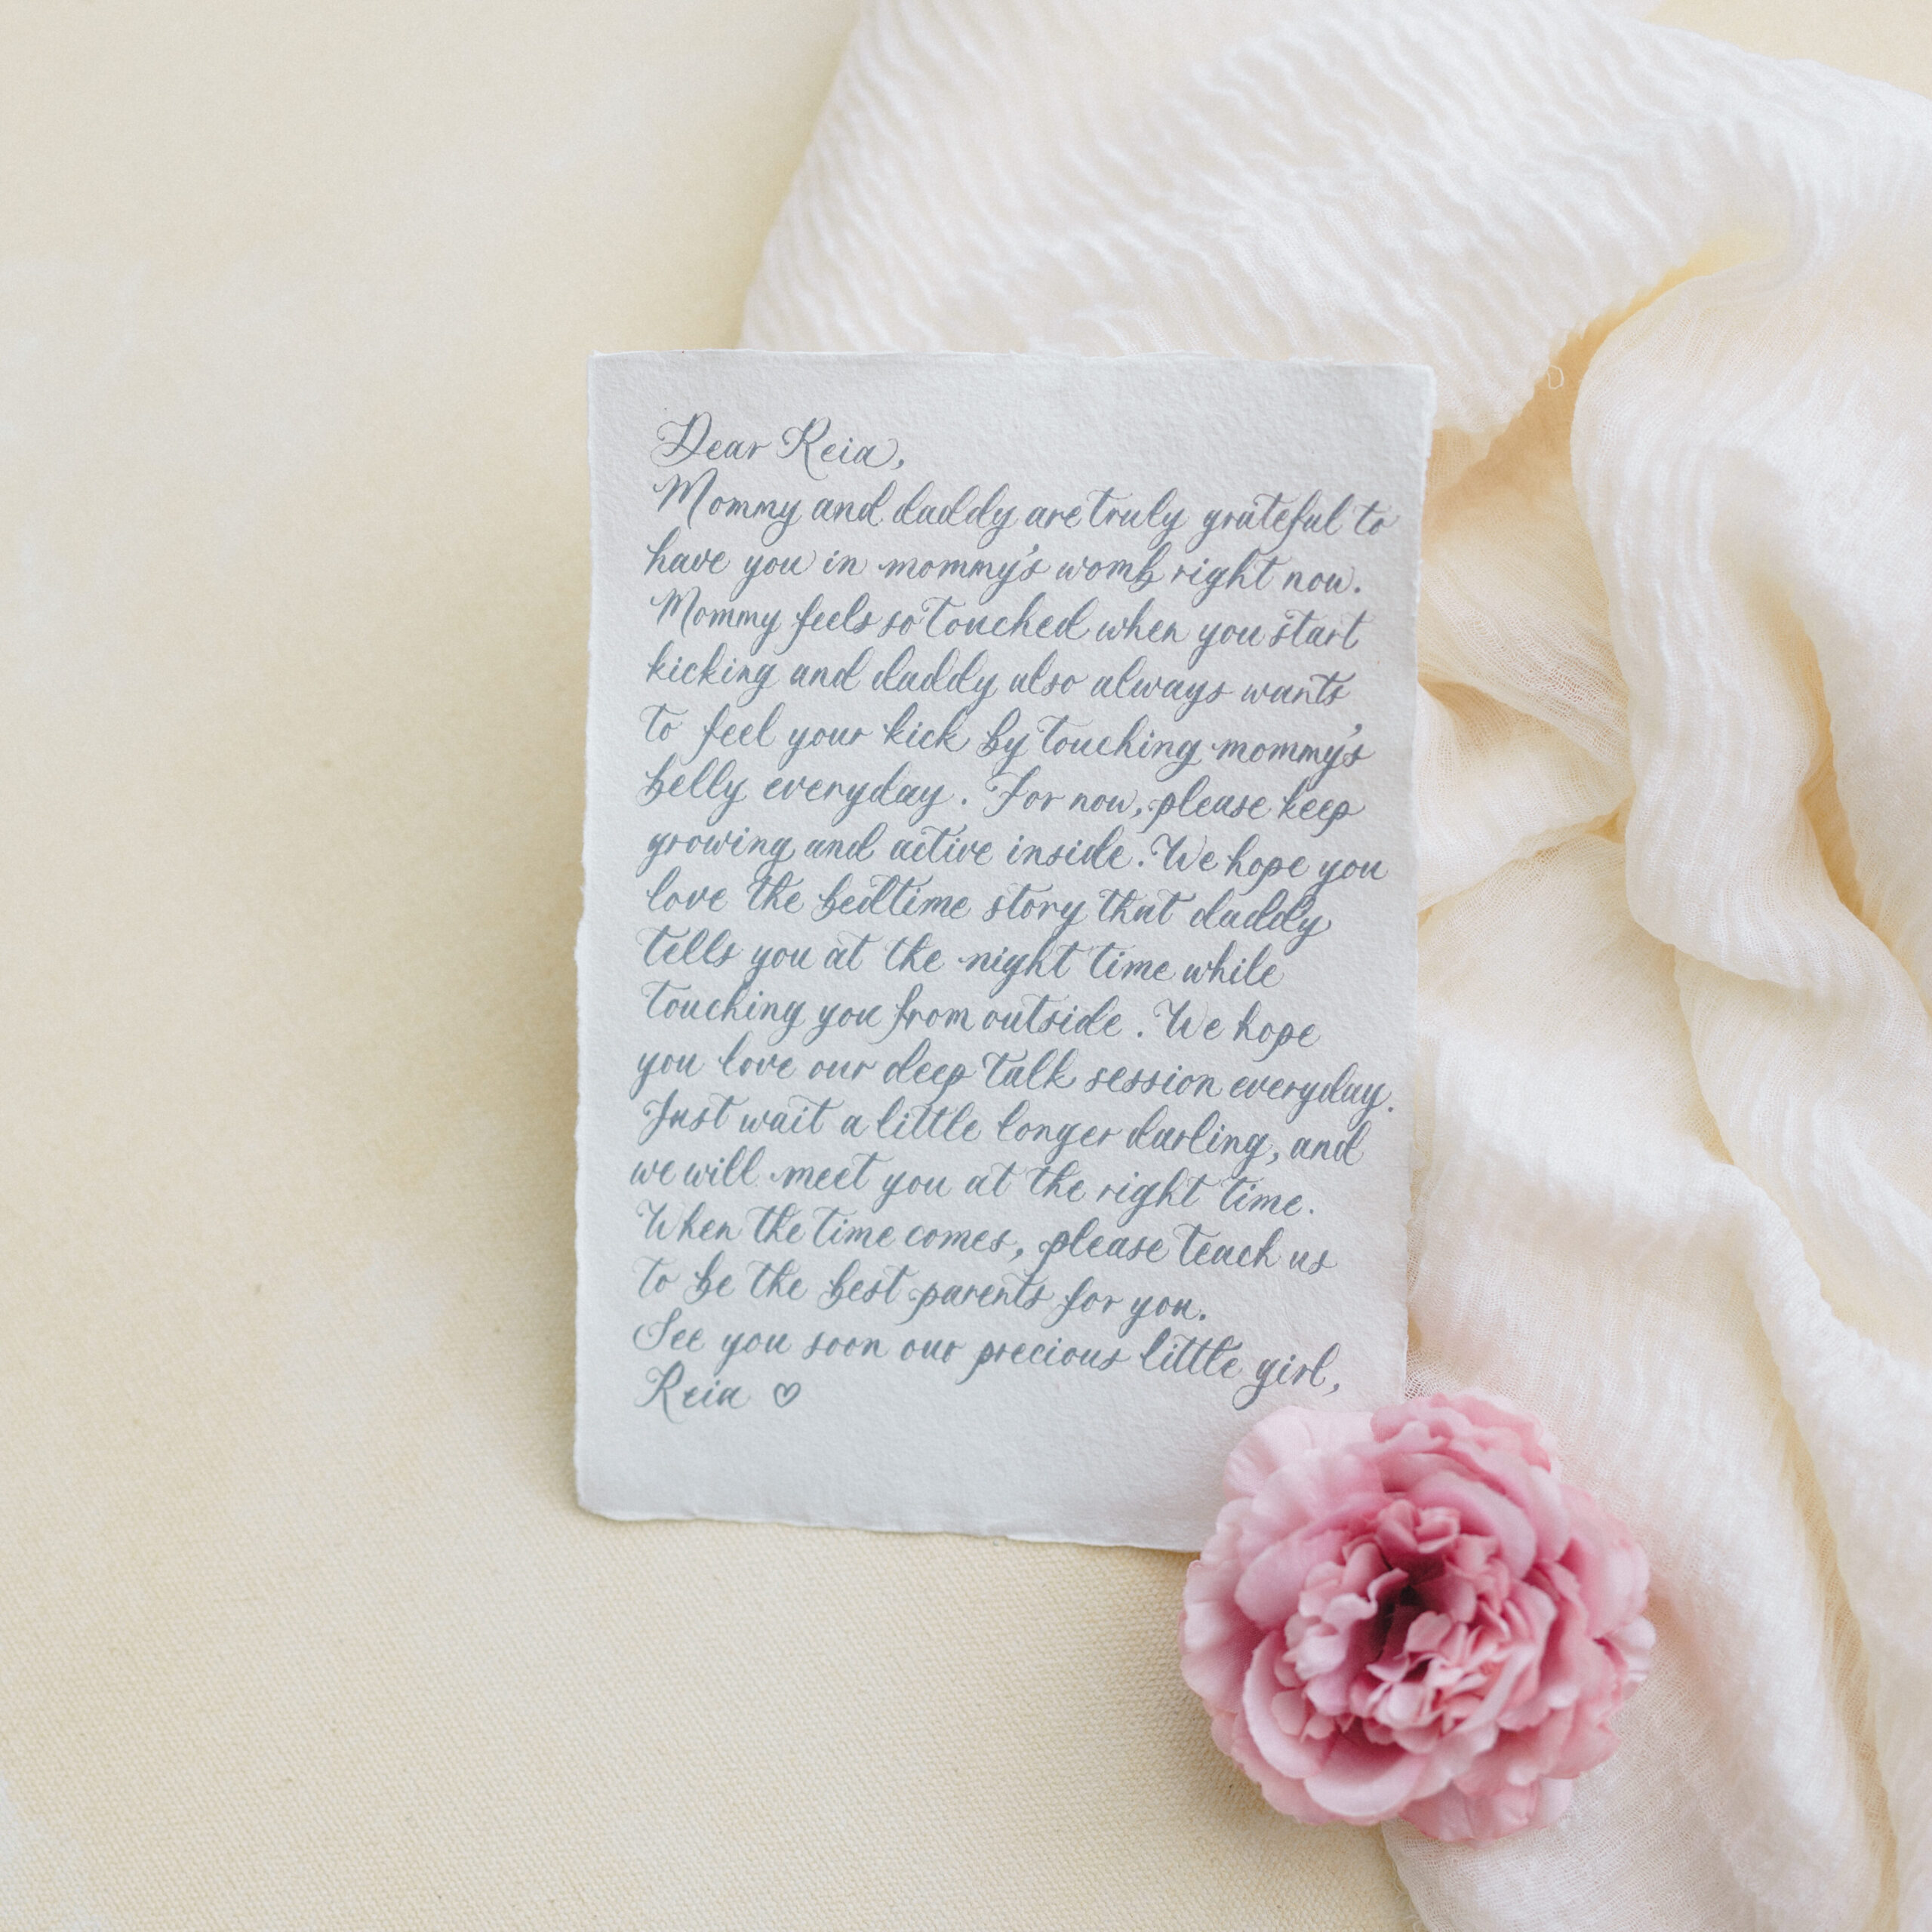 Dear Reia,
Mommy and daddy are truly grateful to
have you in mommy's womb right now.
Mommy feels so touched when you start
kicking and daddy also always wants
to feel your kick by touching mommy's
belly everyday. For now, please keep
growing and active inside. We hope you
love the bedtime story that daddy
tells you at the night time while
touching you from outside. We hope
you love our deep talk session everyday.
Just wait a little longer darling, and
we will meet you at the right time.
When the time comes, please teach us
to be the best parents for you.
See you soon our precious little girl,
Reia ♡